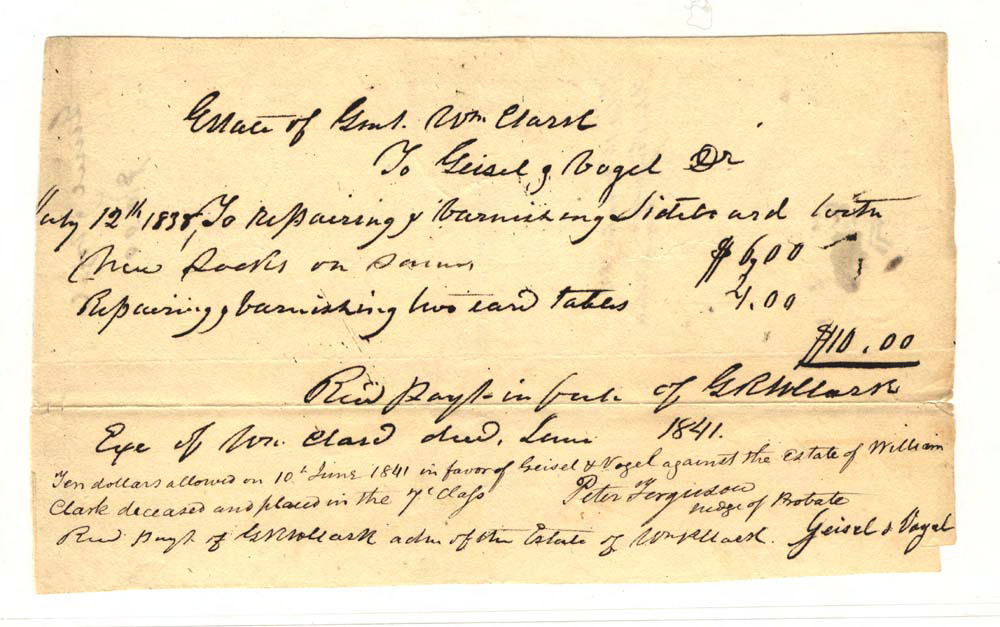 Estate of Genl. Wm Clark
To Geisel & Vogel Dr
July 12th 1838, To Repairing & Varnishing Sideboard with
New Locks on Same $6,00
Repairing & Varnishing two card tables 4.00
$10.00
Recd Payt in full of G R H Clark
Exe of Wm Clark decd, June 1841.
Ten dollars allowed on 10th June 1841 in favor of Geisel & Vogel against the Estate of William
Clark deceased and placed in the Class
Peter Ferguson
Judge of Probate
Recd Payt of G R H Clark adm of the Estate of Wm Clark. Geisel & Vogel